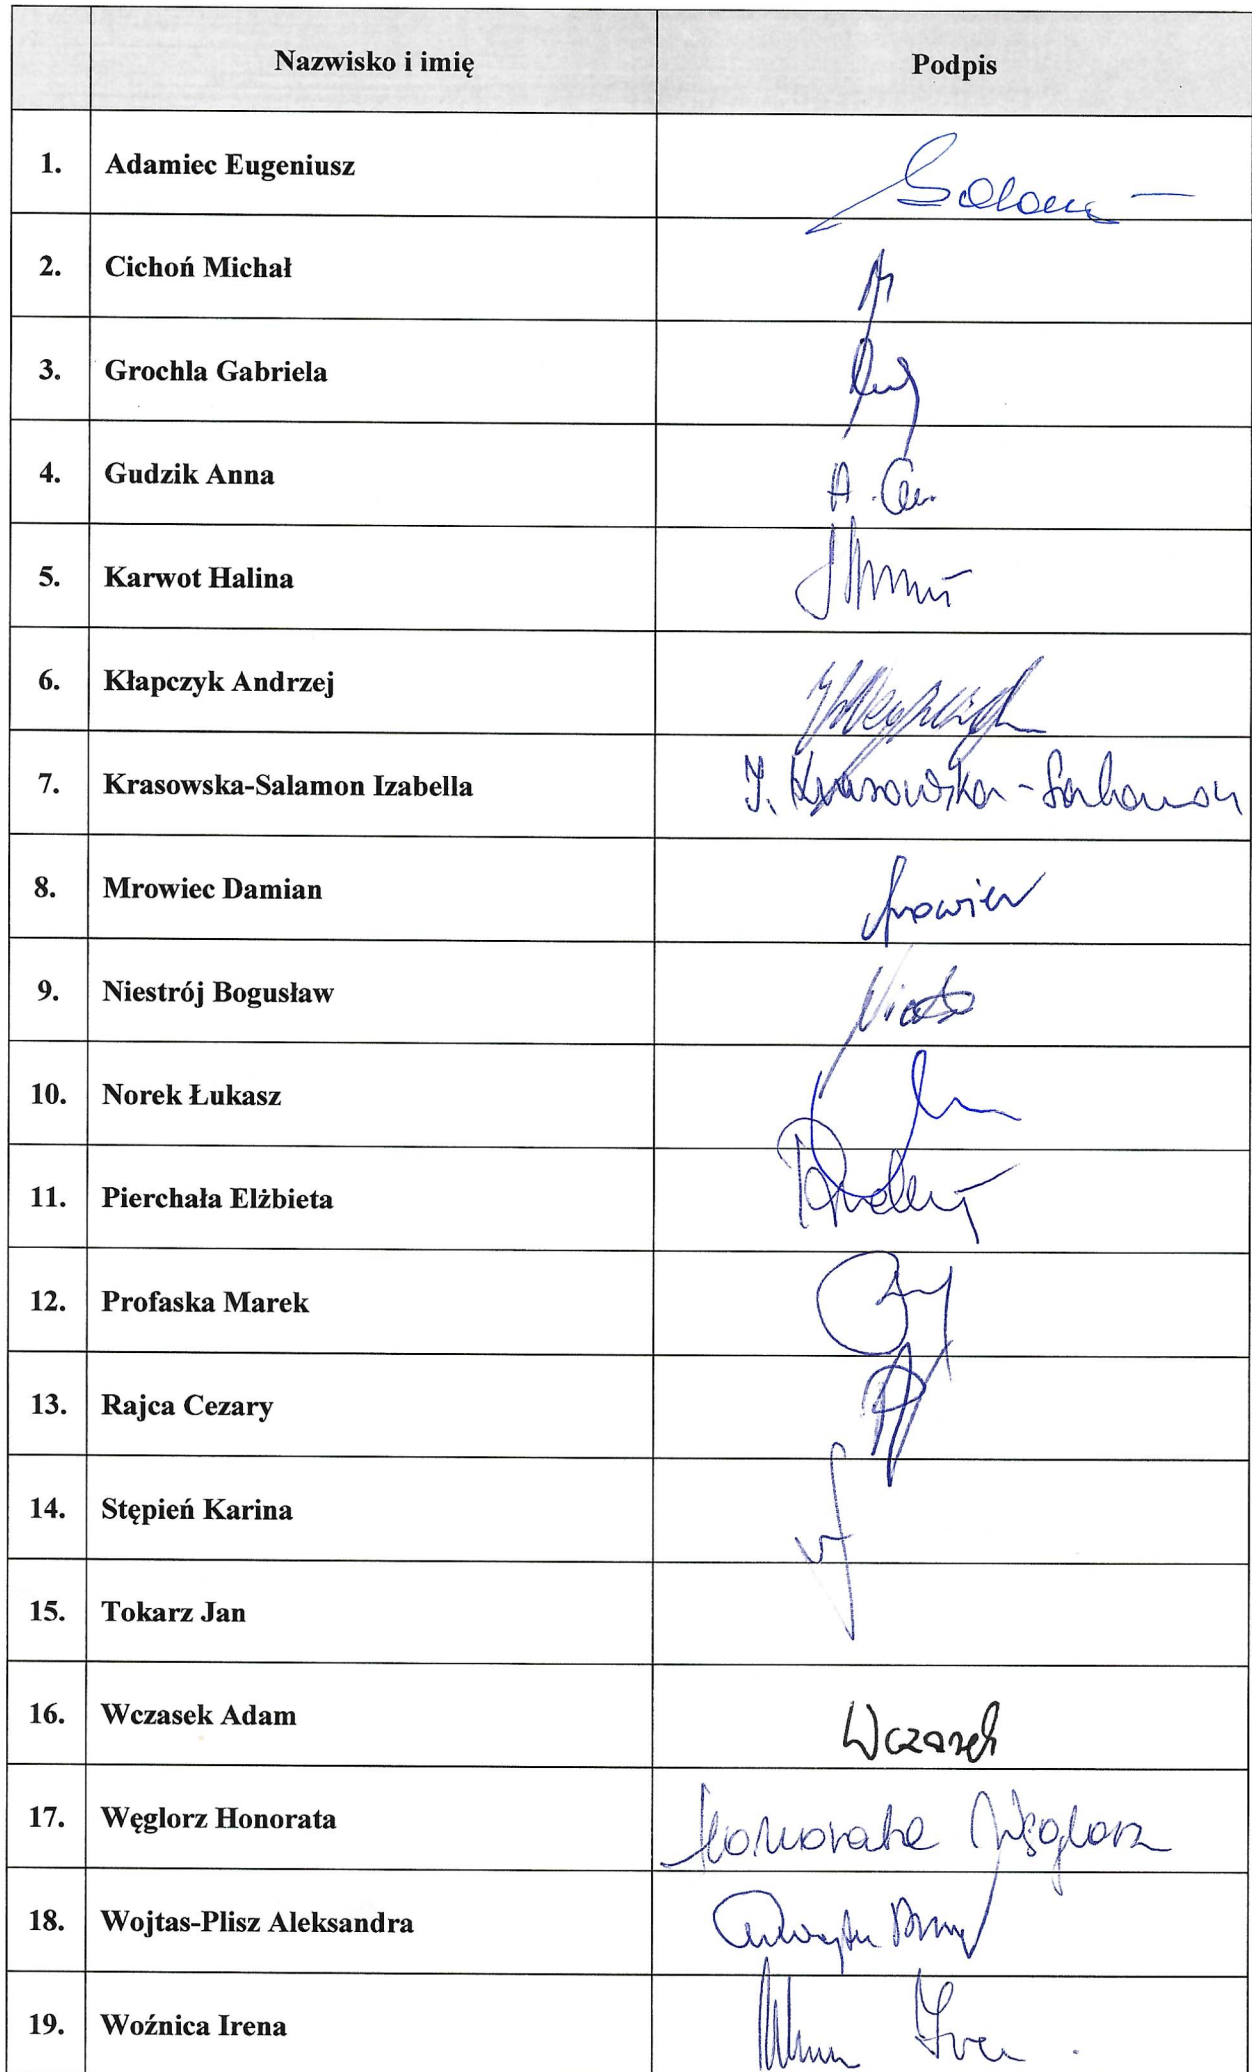 Nazwisko i imię Podpis
1. Adamiec Eugeniusz
2. Cichoń Michał
3. Grochla Gabriela
4. Gudzik Anna A.
5. Karwot Halina
6. Kłapczyk Andrzej
7. Krasowska-Salamon Izabella I. Krasowska-Salamon
8. Mrowiec Damian
9. Niestrój Bogusław
10. Norek Łukasz
11. Pierchała Elżbieta
12. Profaska Marek
13. Rajca Cezary
14. Stępień Karina
15. Tokarz Jan
16. Wczasek Adam Wczasek
17. Węglorz Honorata Honorata Węglorz
18. Wojtas-Plisz Aleksandra
19. Woźnica Irena